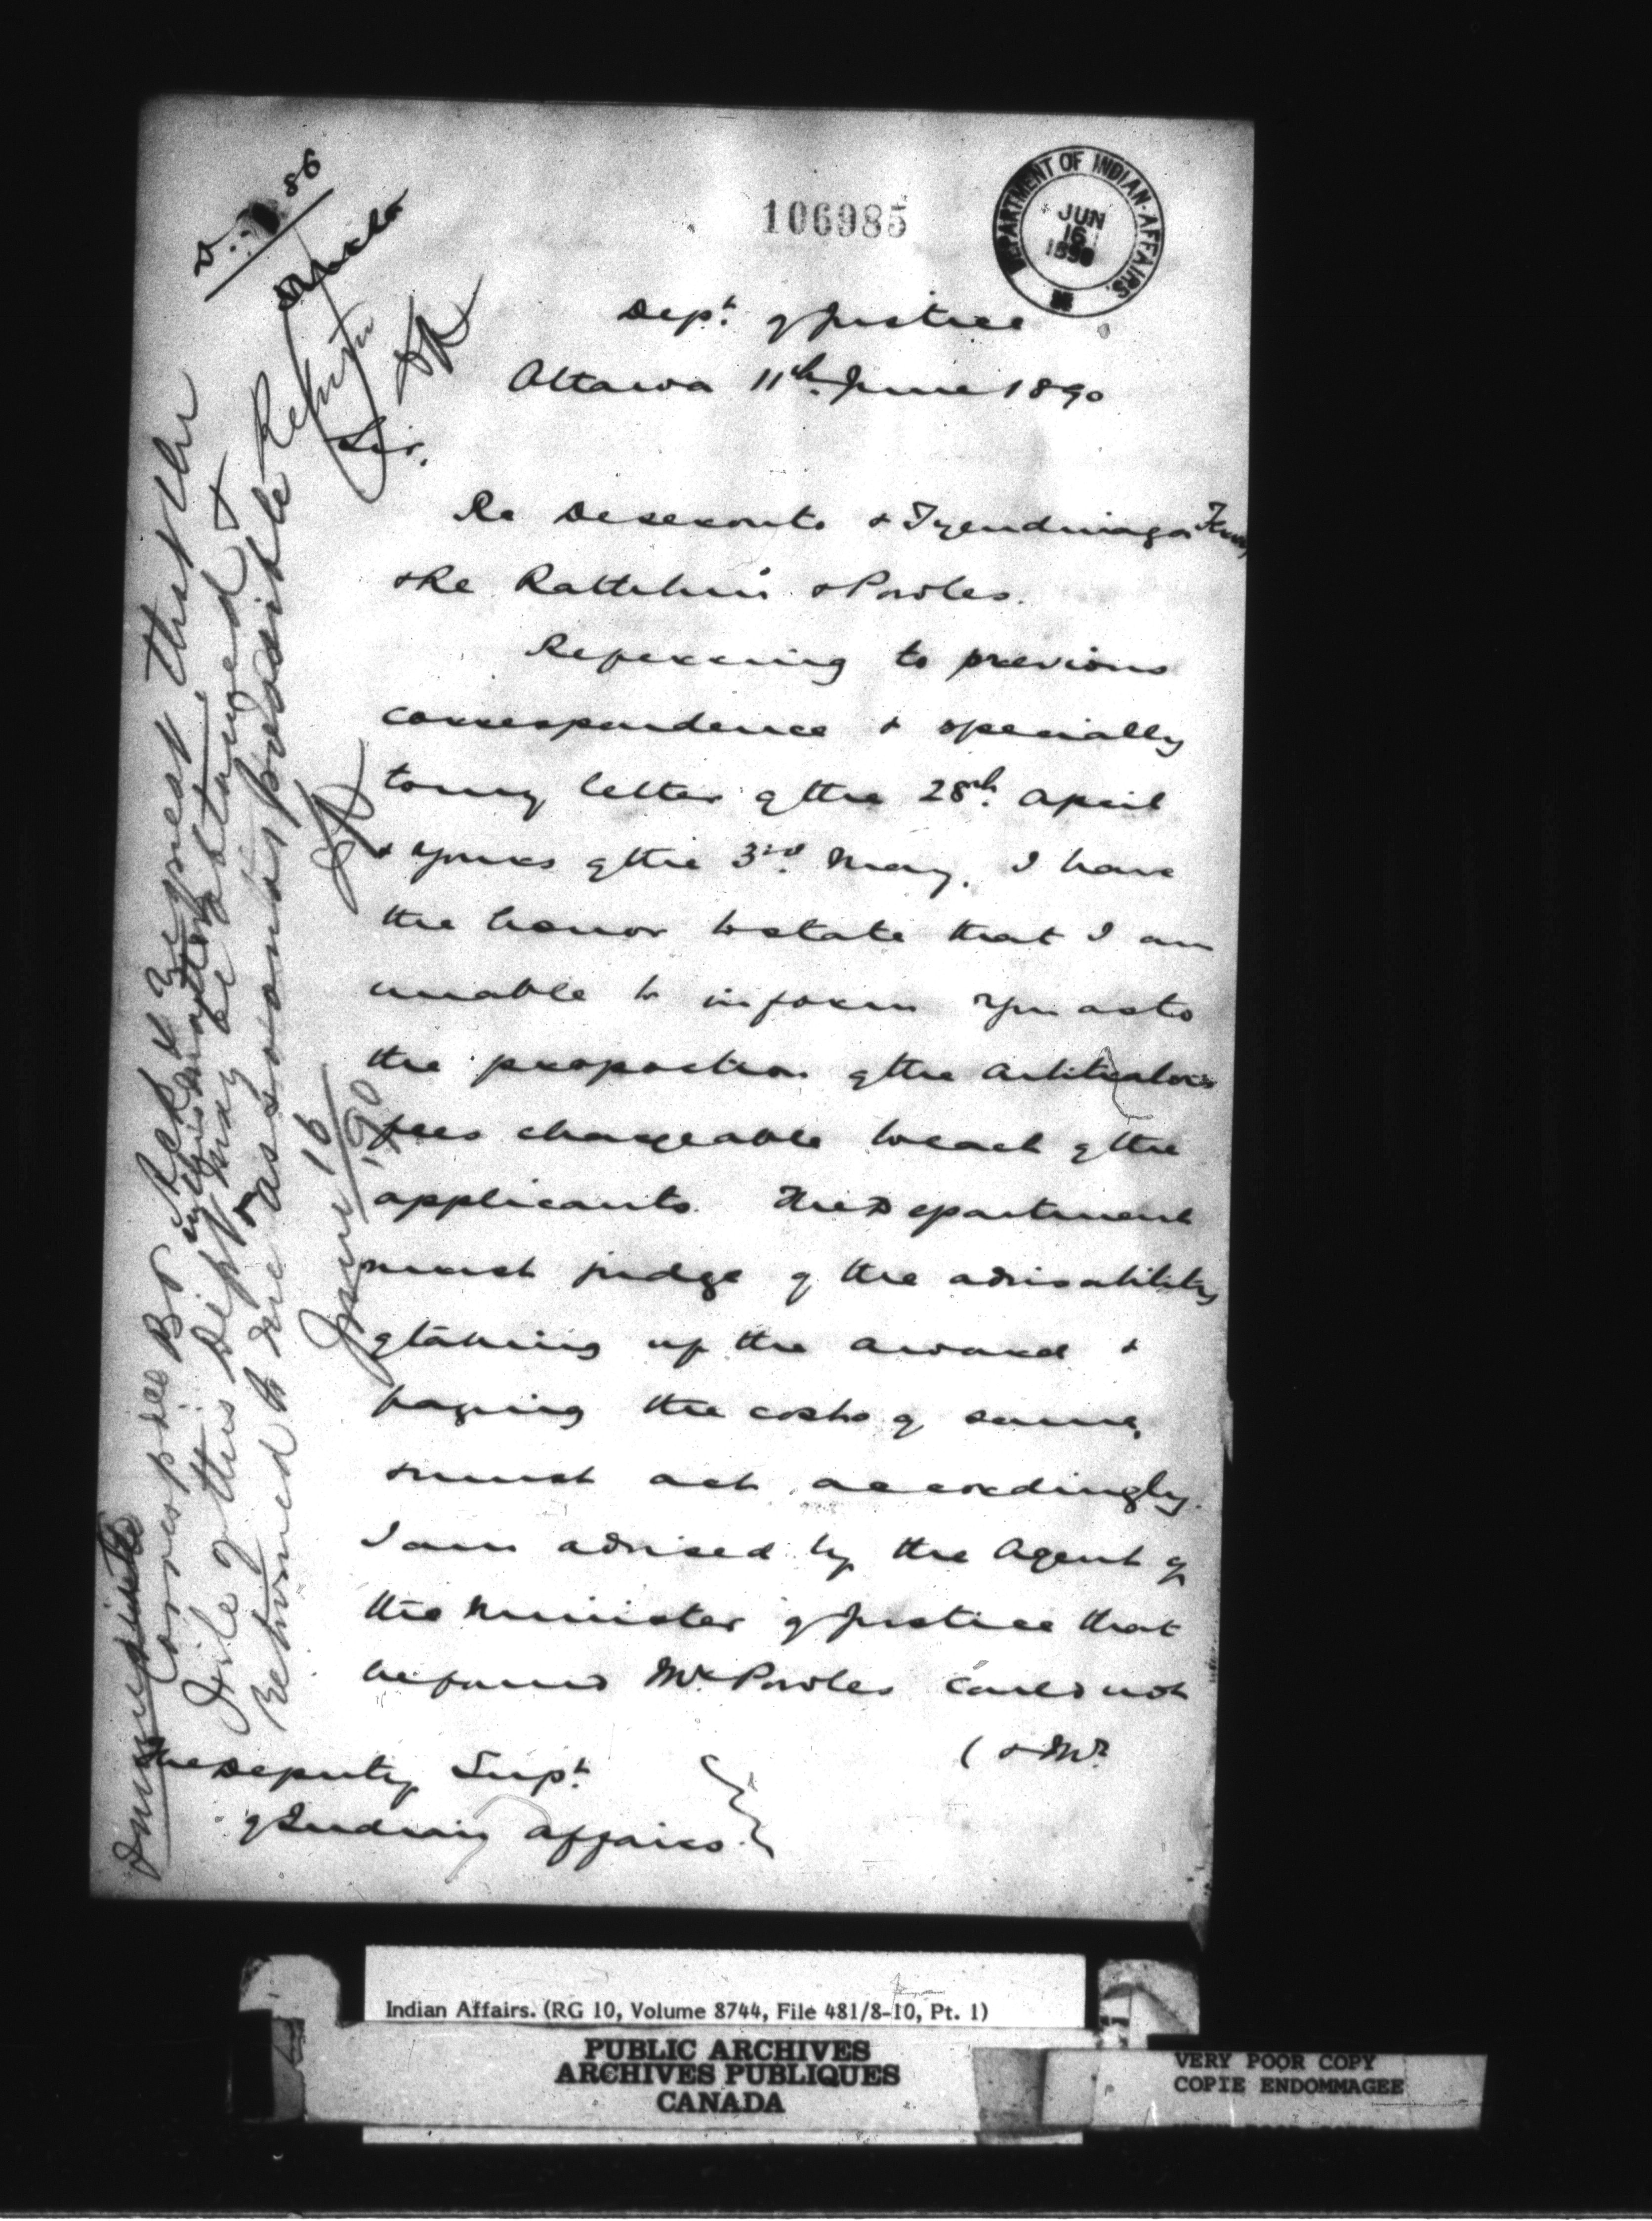 86
106985
DEPARTMENT OF INDIAN AFFAIRS.
JUN
16
1890
Dept. of Justice
Ottawa 11th June 1890
Sir,
Re Deseronto & Tyendinaga
& Re Rattchui & Powles.
Referring to previous
correspondence & specially
to my letter of the 28th April
& yours of the 3rd May, I have
the honor to state that I am
unable to inform you as to
the proportion of the Arbitrators
fees chargeable to each of the
applicants. The Department
must judge of the advisability
of taking up the award &
paying the costs of same,
& must act accordingly.
I am advised by the Agent of
the Minister of Justice that
he found Mr Powles could not
(& Mr.
The Deputy Supt.
of Indian Affairs.
Immediate
Corresp see Br Reks & request that the
in this matter
File of this Dept may be obtained &
Returned to me as soon as possible
June 16
'90
Return
Indian Affairs. (RG 10, Volume 8744, File 481/8-10, Pt. 1)
PUBLIC ARCHIVES
ARCHIVES PUBLIQUES
CANADA
VERY POOR COPY
COPIE ENDOMMAGEE